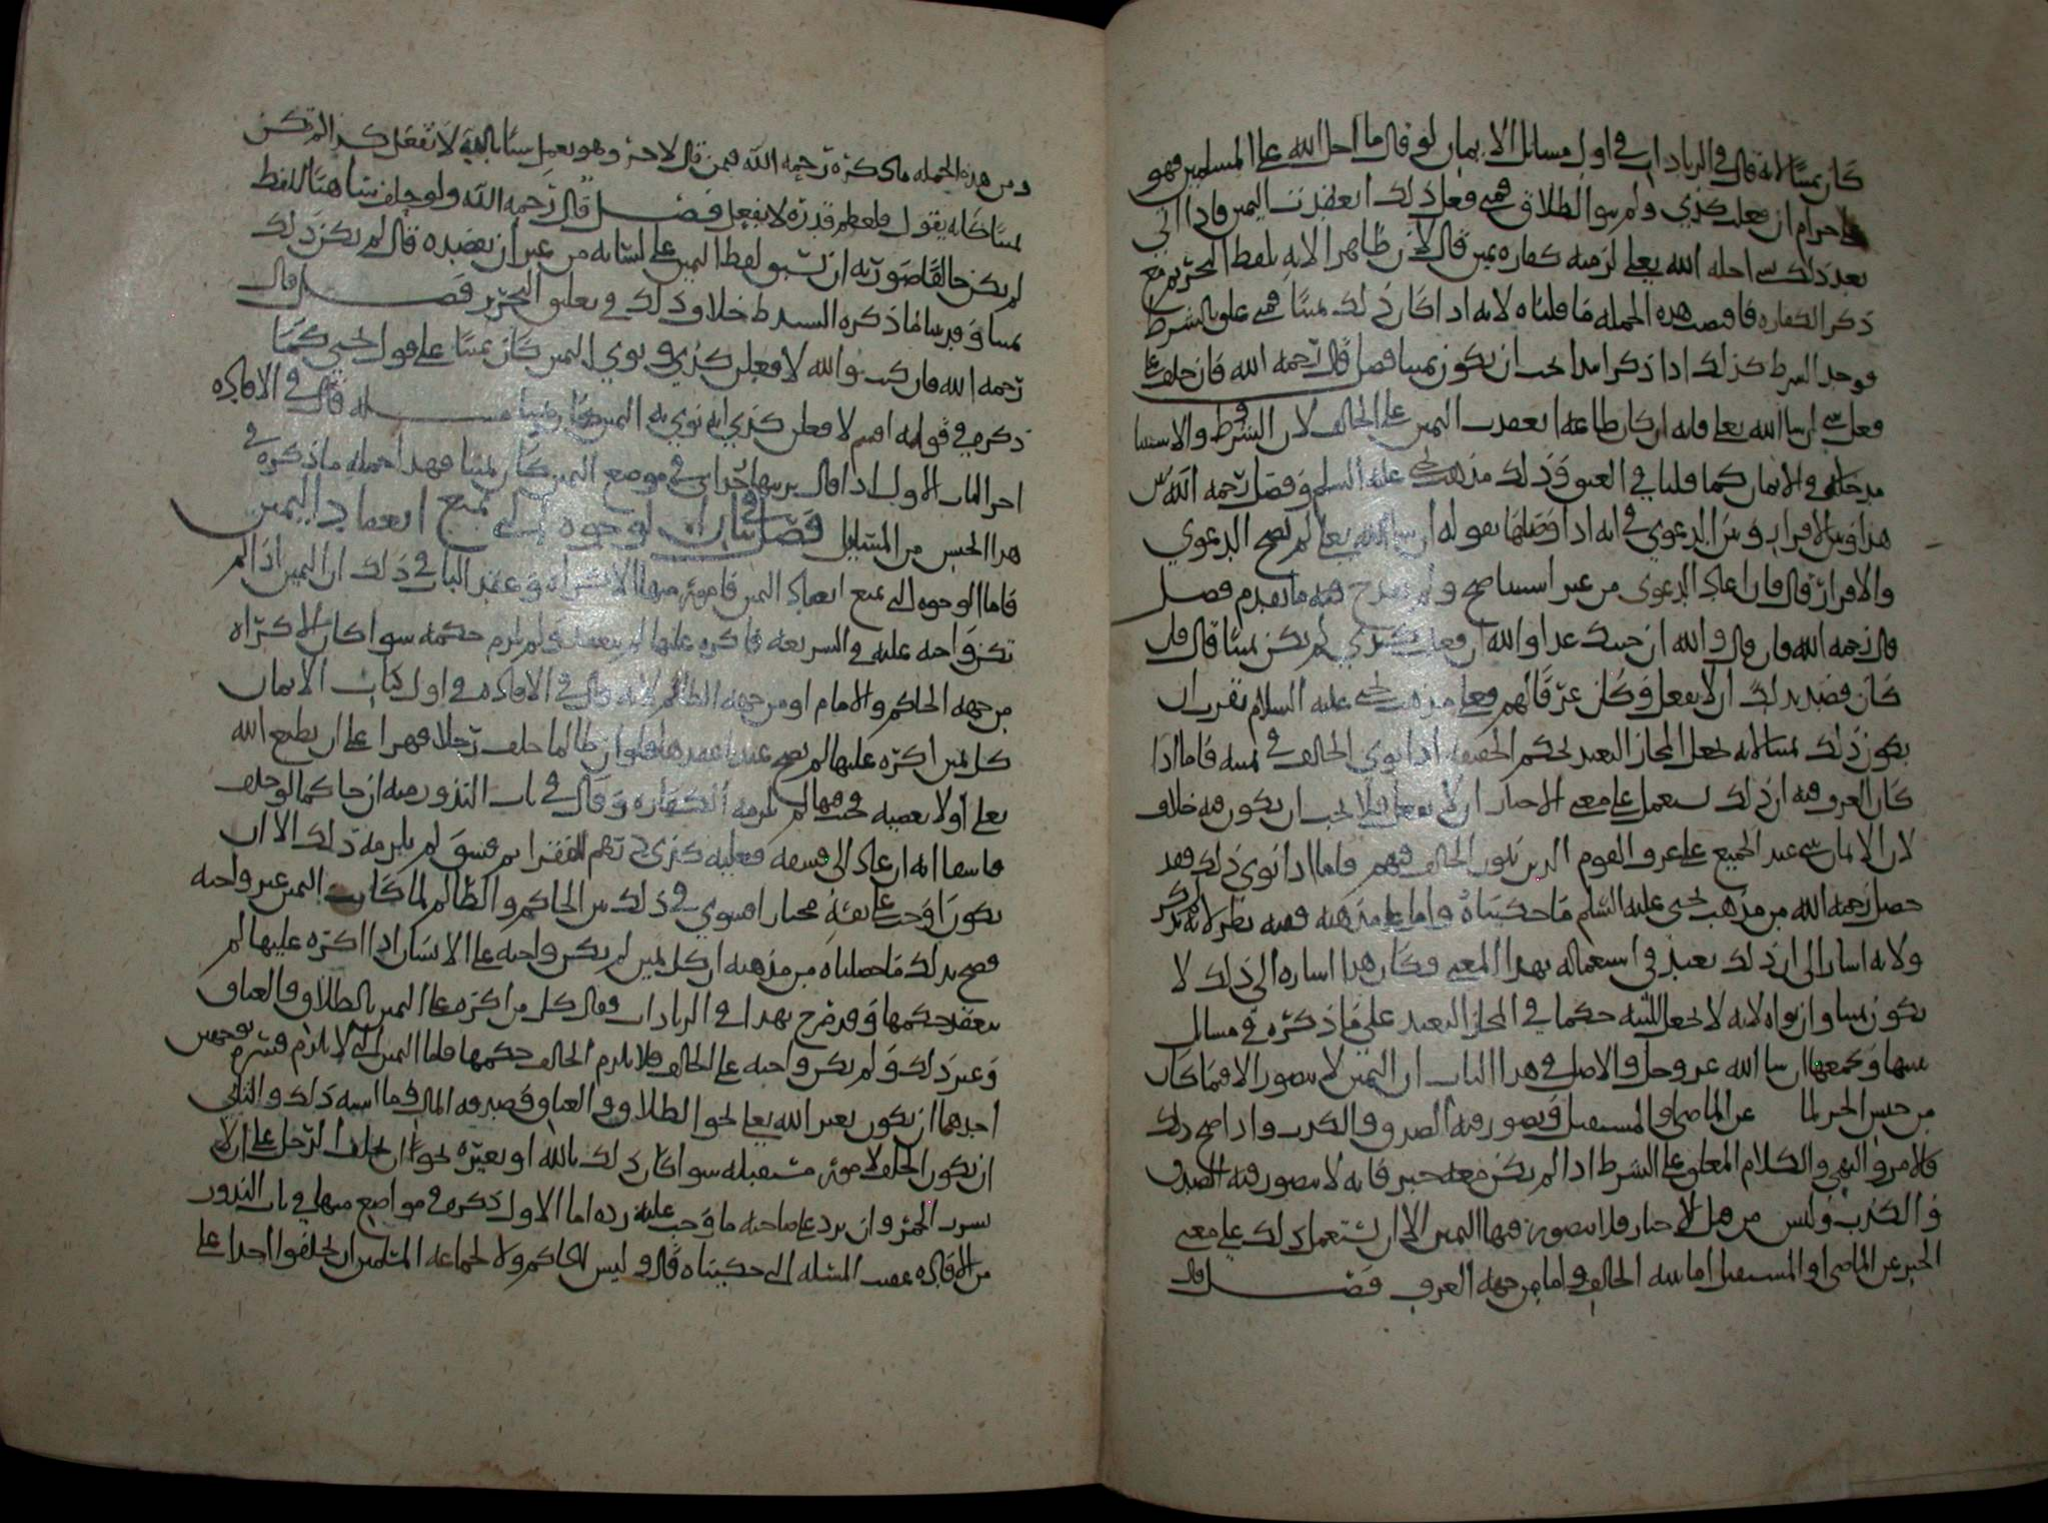 كان يمينا لانه قال في الزيادات في اول مسائل الايمان لو قال ما احل الله على المسلمين فهو
حرام ان فعلت كذي ولم ينو الطلاق فمتى فعل ذلك انعقدت اليمين فاذا اتى
بعد ذلك شي احله الله تعلى لزمته كفارة يمين قال لان ظاهر الايه بلفظ التحريم مع
ذكر الكفاره فاقتضت هذه الجمله ما قلناه لانه اذا كان ذلك يمينا فمتى علق بالشرط
ووجد الشرط كذلك اذا ذكر ابتدا يجب ان يكون يمينا فصل قال رحمه الله فان حلف على
فعل شي ان شا الله تعلى فانه ان كان طاعه انعقدت اليمين على الحالف لان الشرط والاستثنا
يدخلان في الايمان كما قلنا في العتق وذلك مذهب يحيى عليه السلم وفصل رحمه الله بين
هذا وبين الاقرار وبين الدعوي في انه اذا وصلها بقوله ان شا الله تعلى لم تصح الدعوي
والاقرار قال فان اعاد الدعوى من غير استثنا صح ولم يقدح فيه ما تقدم فصل
قال رحمه الله فان قال والله ان جيتك غدا والله ان فعلت كذي لم يكن يمينا قال فان
كان قصد بذلك ان لا يفعل وكان عرفا لهم فعلى مذهب يحيى عليه السلام يقرب ان
يكون ذلك يمينا لانه يجعل المجاز البعيد بحكم الحقيقه اذا نوى الحالف في يمينه فاما اذا
كان العرف فيه ان ذلك يستعمل على معنى الاخبار ان لا يفعل فلا يجب ان يكون فيه خلاف
لان الايمان عند الجميع على عرف القوم الذين يكون الحالف فيهم فاما اذا نوى ذلك فقد
حصل رحمه الله من مذهب يحيى عليه السلم ما حكيناه واما على مذهبه ففيه نظر لانه لم يذكر
ولانه اشار الى ان ذلك يعبد في استعماله بهذا المعنى وكان هذا اشاره الى ذلك لا
يكون يمينا وان نواه لانه لا يجعل للنيه حكما في المجاز البعيد على ما ذكره في مسايل
نبينها ونجمعها ان شا الله عز وجل والاصل في هذا الباب ان اليمين لا يتصور الا فيما كان
من جنس الخبر اما عن الماضي او المستقبل ويصور فيه الصدق والكذب واذا صح ذلك
فالامر والنهي والكلام المعلق على الشرط اذا لم يكن معه خبر فانه لا يتصور فيه الصدق
والكذب وليس من قبيل الاخبار فلا يتصور فيها اليمين الا ان يستعمل ذلك على معنى
الخبر عن الماضي او المستقبل اما بنيه الحالف واما من جهه العرف فصل قال
ومن هذه الجمله ما ذكره رحمه الله فيمن قال لاخر وهو يعمل شيا بالله لا تفعل كذا لم تكن
يمينا كانه يقول فلعظم قدره لا تفعل فصل قال رحمه الله ولو حلف شاهيا للفظ
لم يكن حالفا صورته ان يسبق لفظ اليمين على لسانه من غير ان يقصده قال لم يكن ذلك
يمينا وقد بينا ما ذكره السيد ط خلاف ذلك في تعليق التحرير فصل قال
رحمه الله فان كتب والله لا فعلن كذي ونوى اليمين كان يمينا على قول يحيى كما
ذكره في قوله اقسم لا فعلن كذي انه نوى به اليمين كان يمينا مسله قال في الافاده
اخر الباب الاول اذا قال في موضع اليمين كان يمينا فهذا جمله ما ذكره في
هذا الجنس من المسايل فصل في بيان الوجوه التي تمنع انعقاد اليمين
فاما الوجوه التي تمنع انعقاد اليمين فامور منها الاكراه وعقد الباب في ذلك ان اليمين اذا لم
تكن واجبه عليه في الشريعه فاكره عليها لم ينعقد ولم يلزم حكمه سوا كان الاكراه
من جهه الحاكم والامام او من جهه الظالم لانه قال في الافاده في اول كتاب الايمان
كل يمين اكره عليها لم يصح عندنا عقدها فلو ان ظالما حلف رجلا قهرا على ان يطيع الله
تعلى او لا يعصيه فحنث فيها لم يلزمه الكفاره وقال في باب النذور منه ان حاكما لو حلف
فاسقا انه ان عاد الى فسقه فعليه كذي درهم للفقرا ثم فسق لم يلزمه ذلك الا ان
يكون اوجب على نفسه مختارا فسوي في ذلك بين الحاكم والظالم لما كانت اليمين غير واجبه
فصح بذلك ما حصلناه من مذهبه ان كل يمين لم يكن واجبه على الانسان اذا اكره عليها لم
ينعقد حكمها وقد صرح بهذا في الزيادات فقال كل من اكره على اليمين بالطلاق والعتاق
وغير ذلك ولم يكن واجبه على الحالف فلا يلزم الحالف حكمها فاما اليمين التي لا يلزم فشرع وجهين
احدهما ان يكون بغير الله تعلى نحو الطلاق والعتاق وصدقه المال وما اشبه ذلك والثاني
ان يكون الحلف لامور مستقبله سوا كان ذلك بالله او بغيره نحو ان يحلف الرجل على ان لا
يشرب الخمر وان يرد على صاحبه ما وجب عليه رده اما الاول ذكره في مواضع منها في باب النذور
من الافاده عقيب المسله التي حكيناه قال وليس للحاكم ولا لجماعه المسلمين ان يحلفوا احدا على